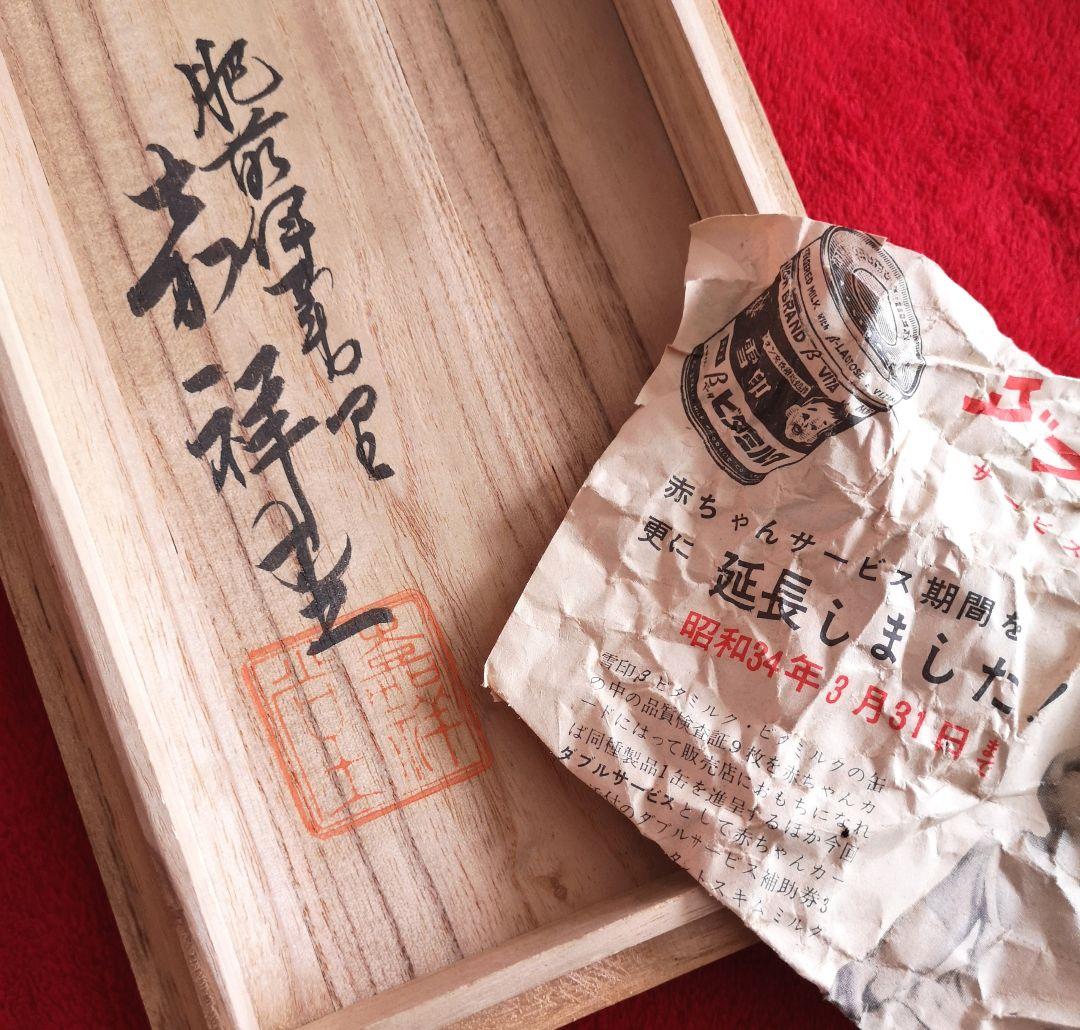 肥前伊萬里
嘉祥造
BRAND β VITA
雪印
β
ビタミルク
サービス
赤ちゃんサービス期間を
更に 延長しました!
昭和34年3月31日まで
雪印βビタミルク・ビタミルクの缶
の中の品質検査証9枚を赤ちゃんカ
ードにはって販売店におもちになれ
ば同種製品1缶を進呈するほか今回
ダブルサービスとして赤ちゃんカー
のダブルサービス補助券3
トスキムミルク